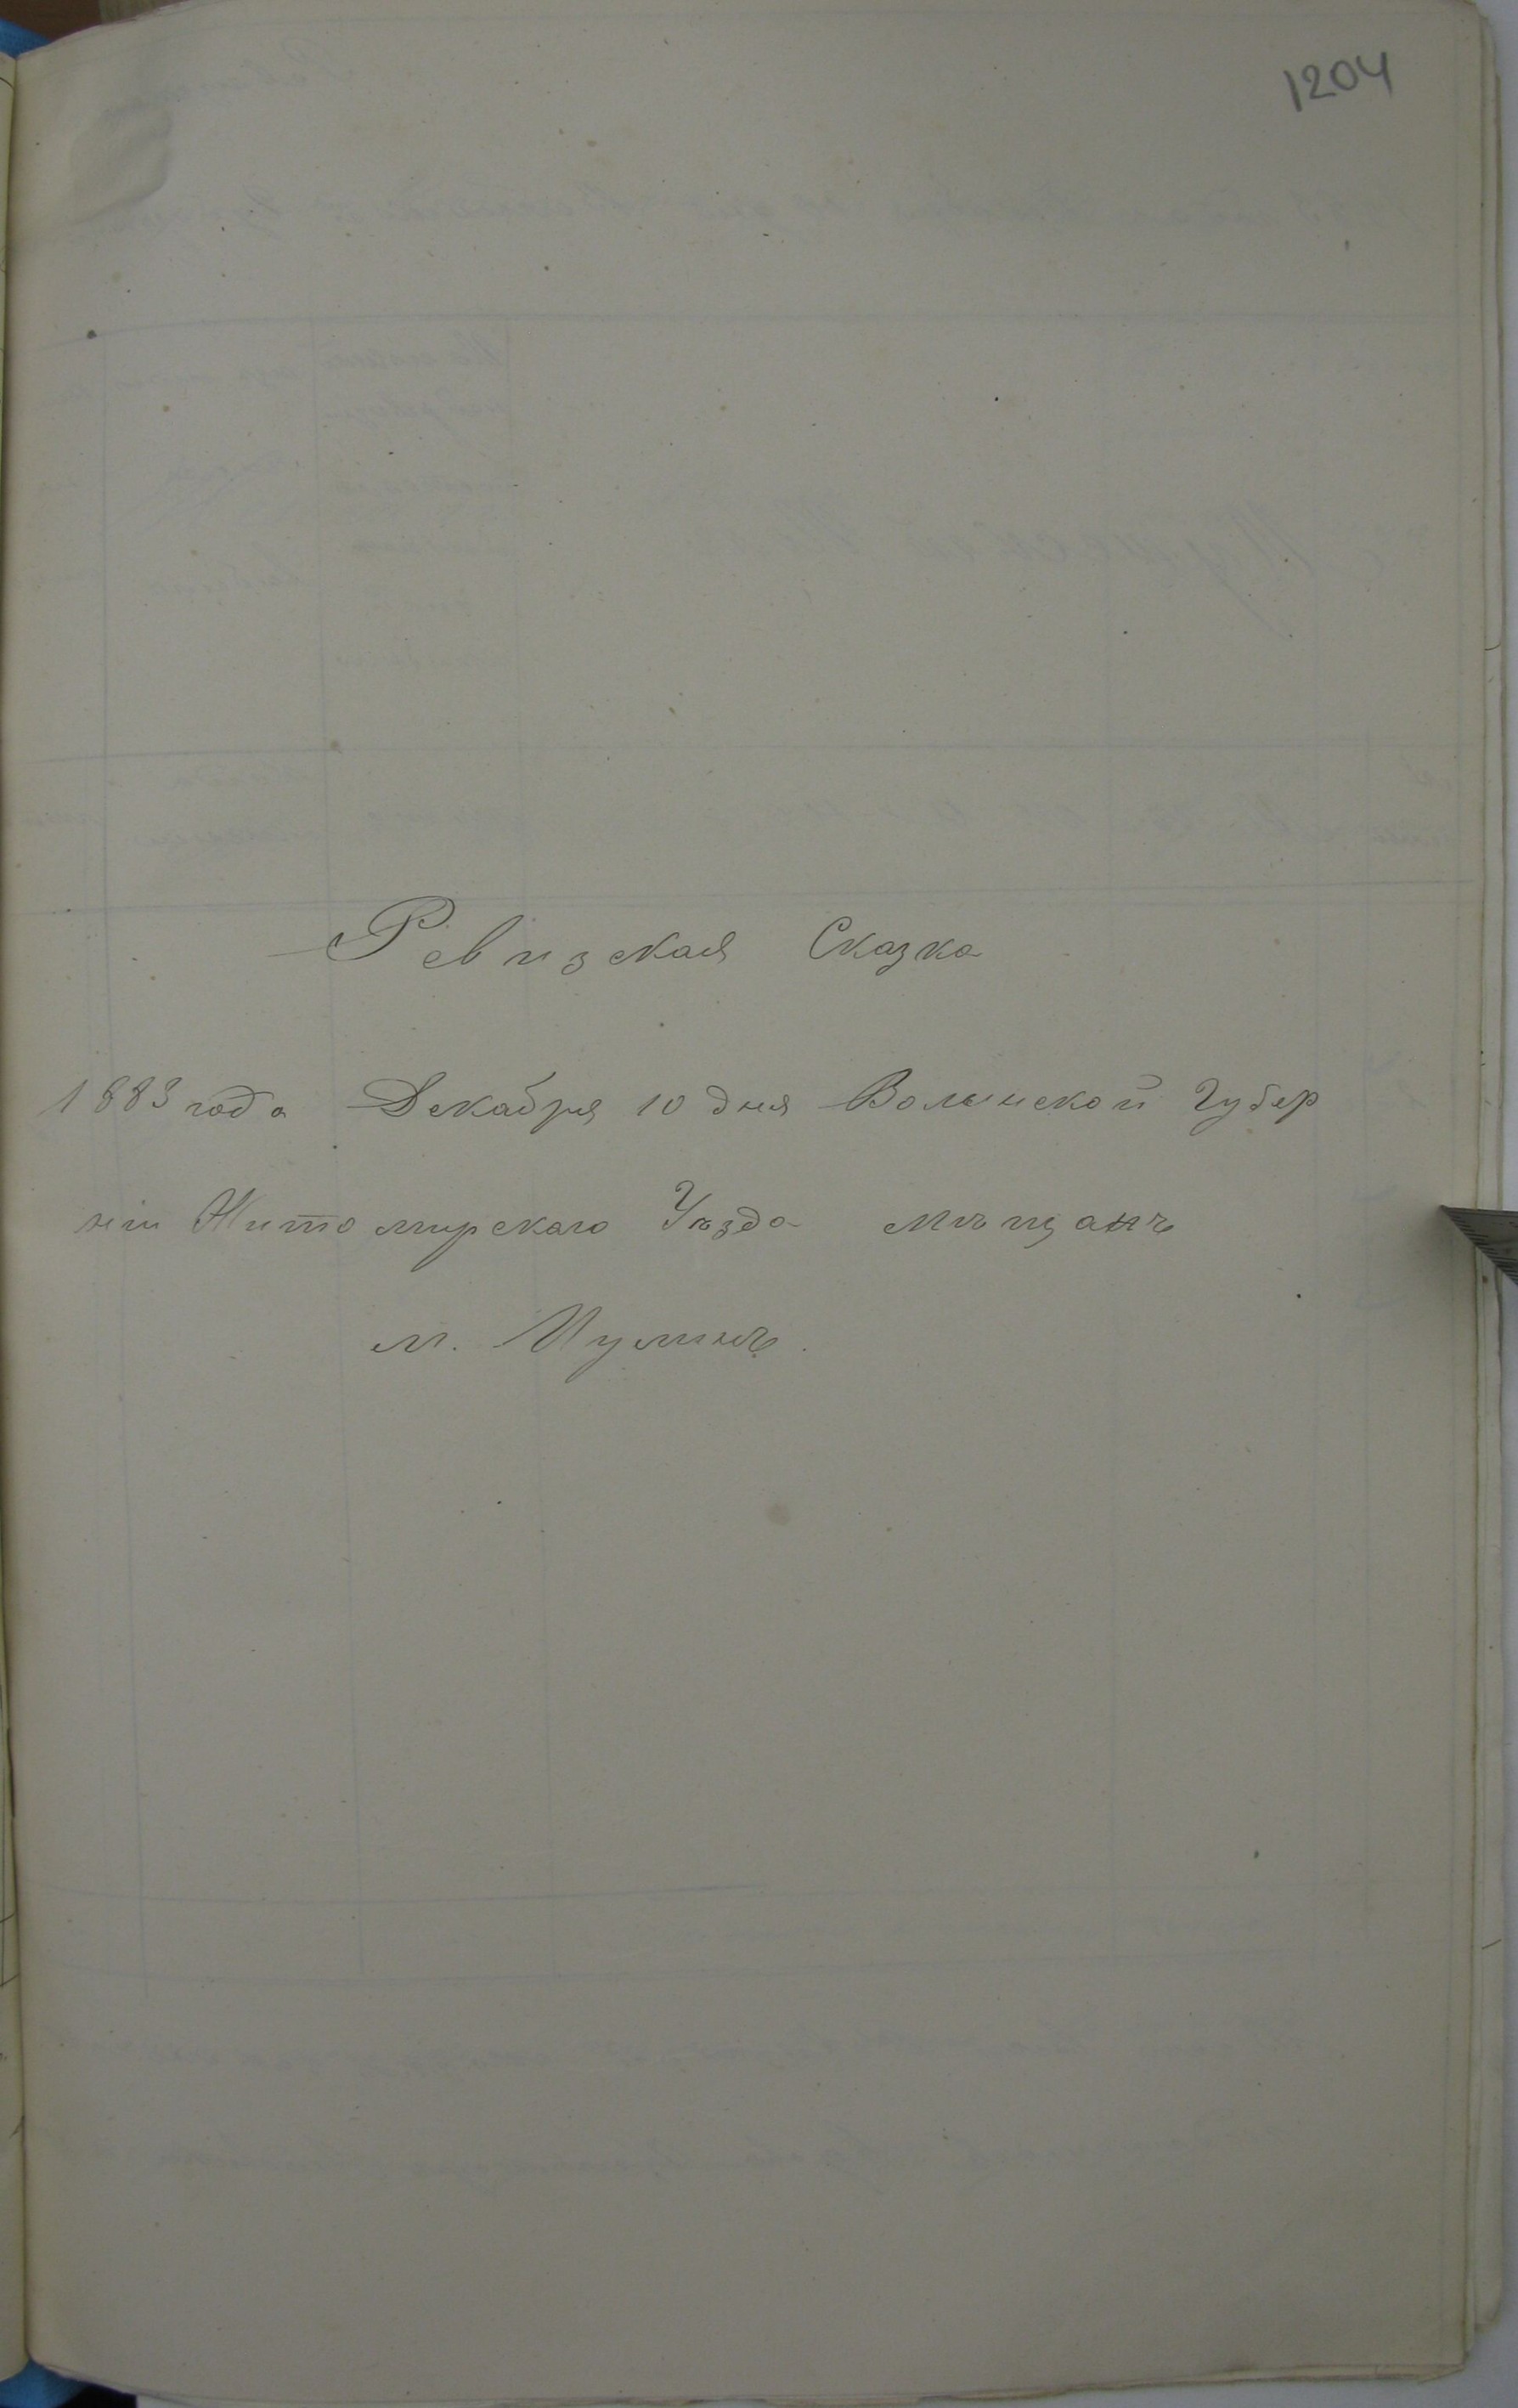 1204
Ревизская Сказка
1883 года Декабря 10 дня Волынской Губер
нiи Житомирскаго Уѣзда мѣщанъ
м. Пулинъ.